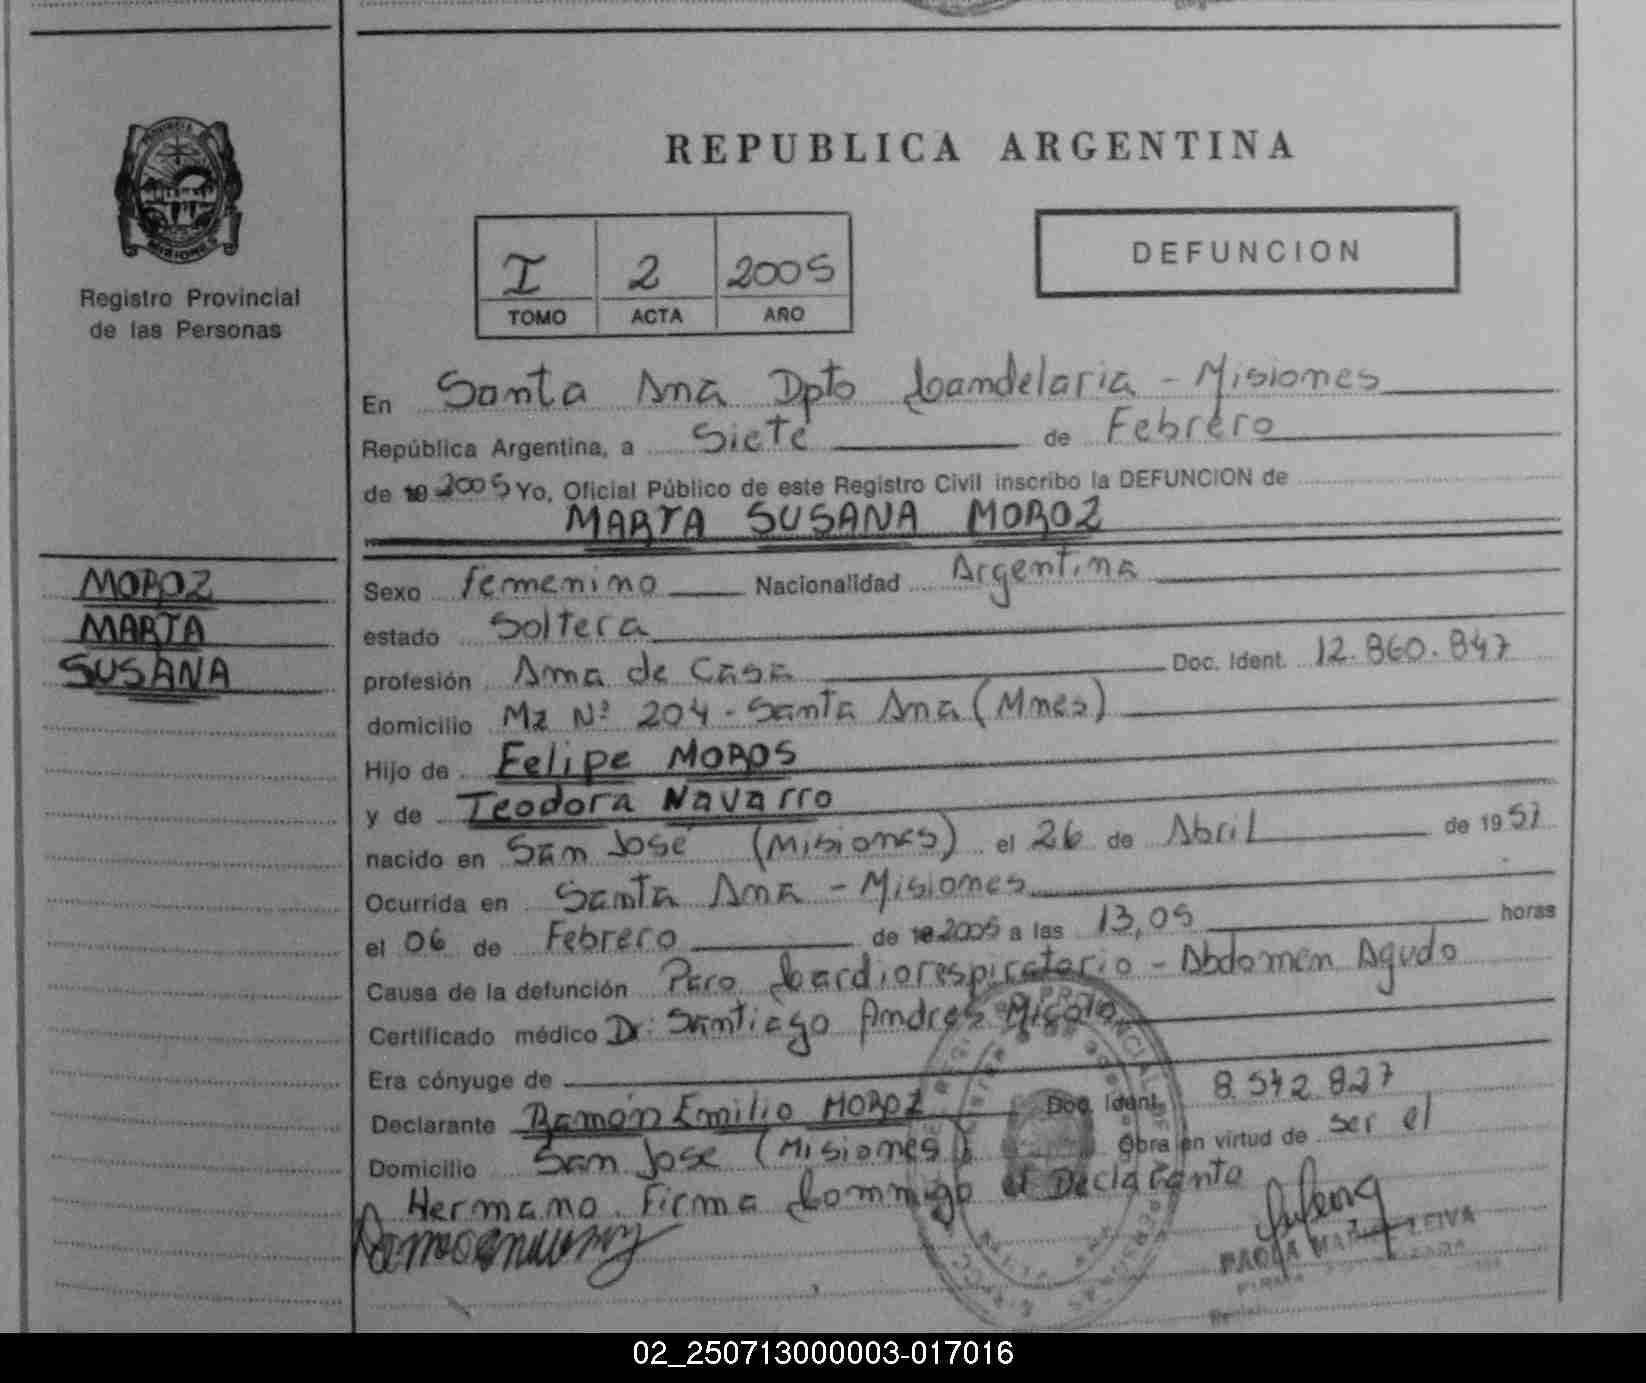 REPUBLICA ARGENTINA
PROVINCIA DE MISIONES
Registro Provincial
de las Personas
I 2 2005
TOMO ACTA AÑO
DEFUNCION
En Santa Ana Dpto Candelaria - Misiones
República Argentina, a Siete de Febrero
de 19 2005 Yo, Oficial Público de este Registro Civil inscribo la DEFUNCION de
MARTA SUSANA MOROZ
MOROZ
MARTA
SUSANA
Sexo femenino Nacionalidad Argentina
estado Soltera
profesión Ama de Casa Doc. Ident. 12.860.847
domicilio Mz Nº 204 - Santa Ana (Mnes)
Hijo de Felipe MOROS
y de Teodora Navarro
nacido en San José (Misiones) el 26 de Abril de 1957
Ocurrida en Santa Ana - Misiones
el 06 de Febrero de 19 2005 a las 13,05 horas
Causa de la defunción Paro Cardiorespiratorio - Abdomen Agudo
Certificado médico Dr: Santiago Andres
Era cónyuge de
Declarante Ramón Emilio MOROZ Doc. Ident. 8.542.827
Domicilio San Jose (Misiones) Obra en virtud de ser el
Hermano. Firma Conmigo el Declarante
PAOLA MARIA LEIVA
02_250713000003-017016